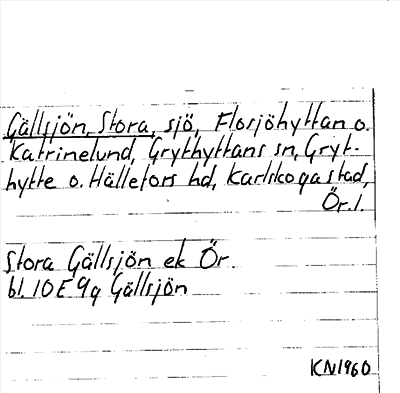 Gällsjön, Stora, sjö, Flosjöhyttan o.
Katrinelund, Grythyttans sn, Gryt-
hytte o. Hällefors hd, Karlskoga stad,
Ör. l.
Stora Gällsjön ek Ör.
bl. 10E 9g Gällsjön
KN1960